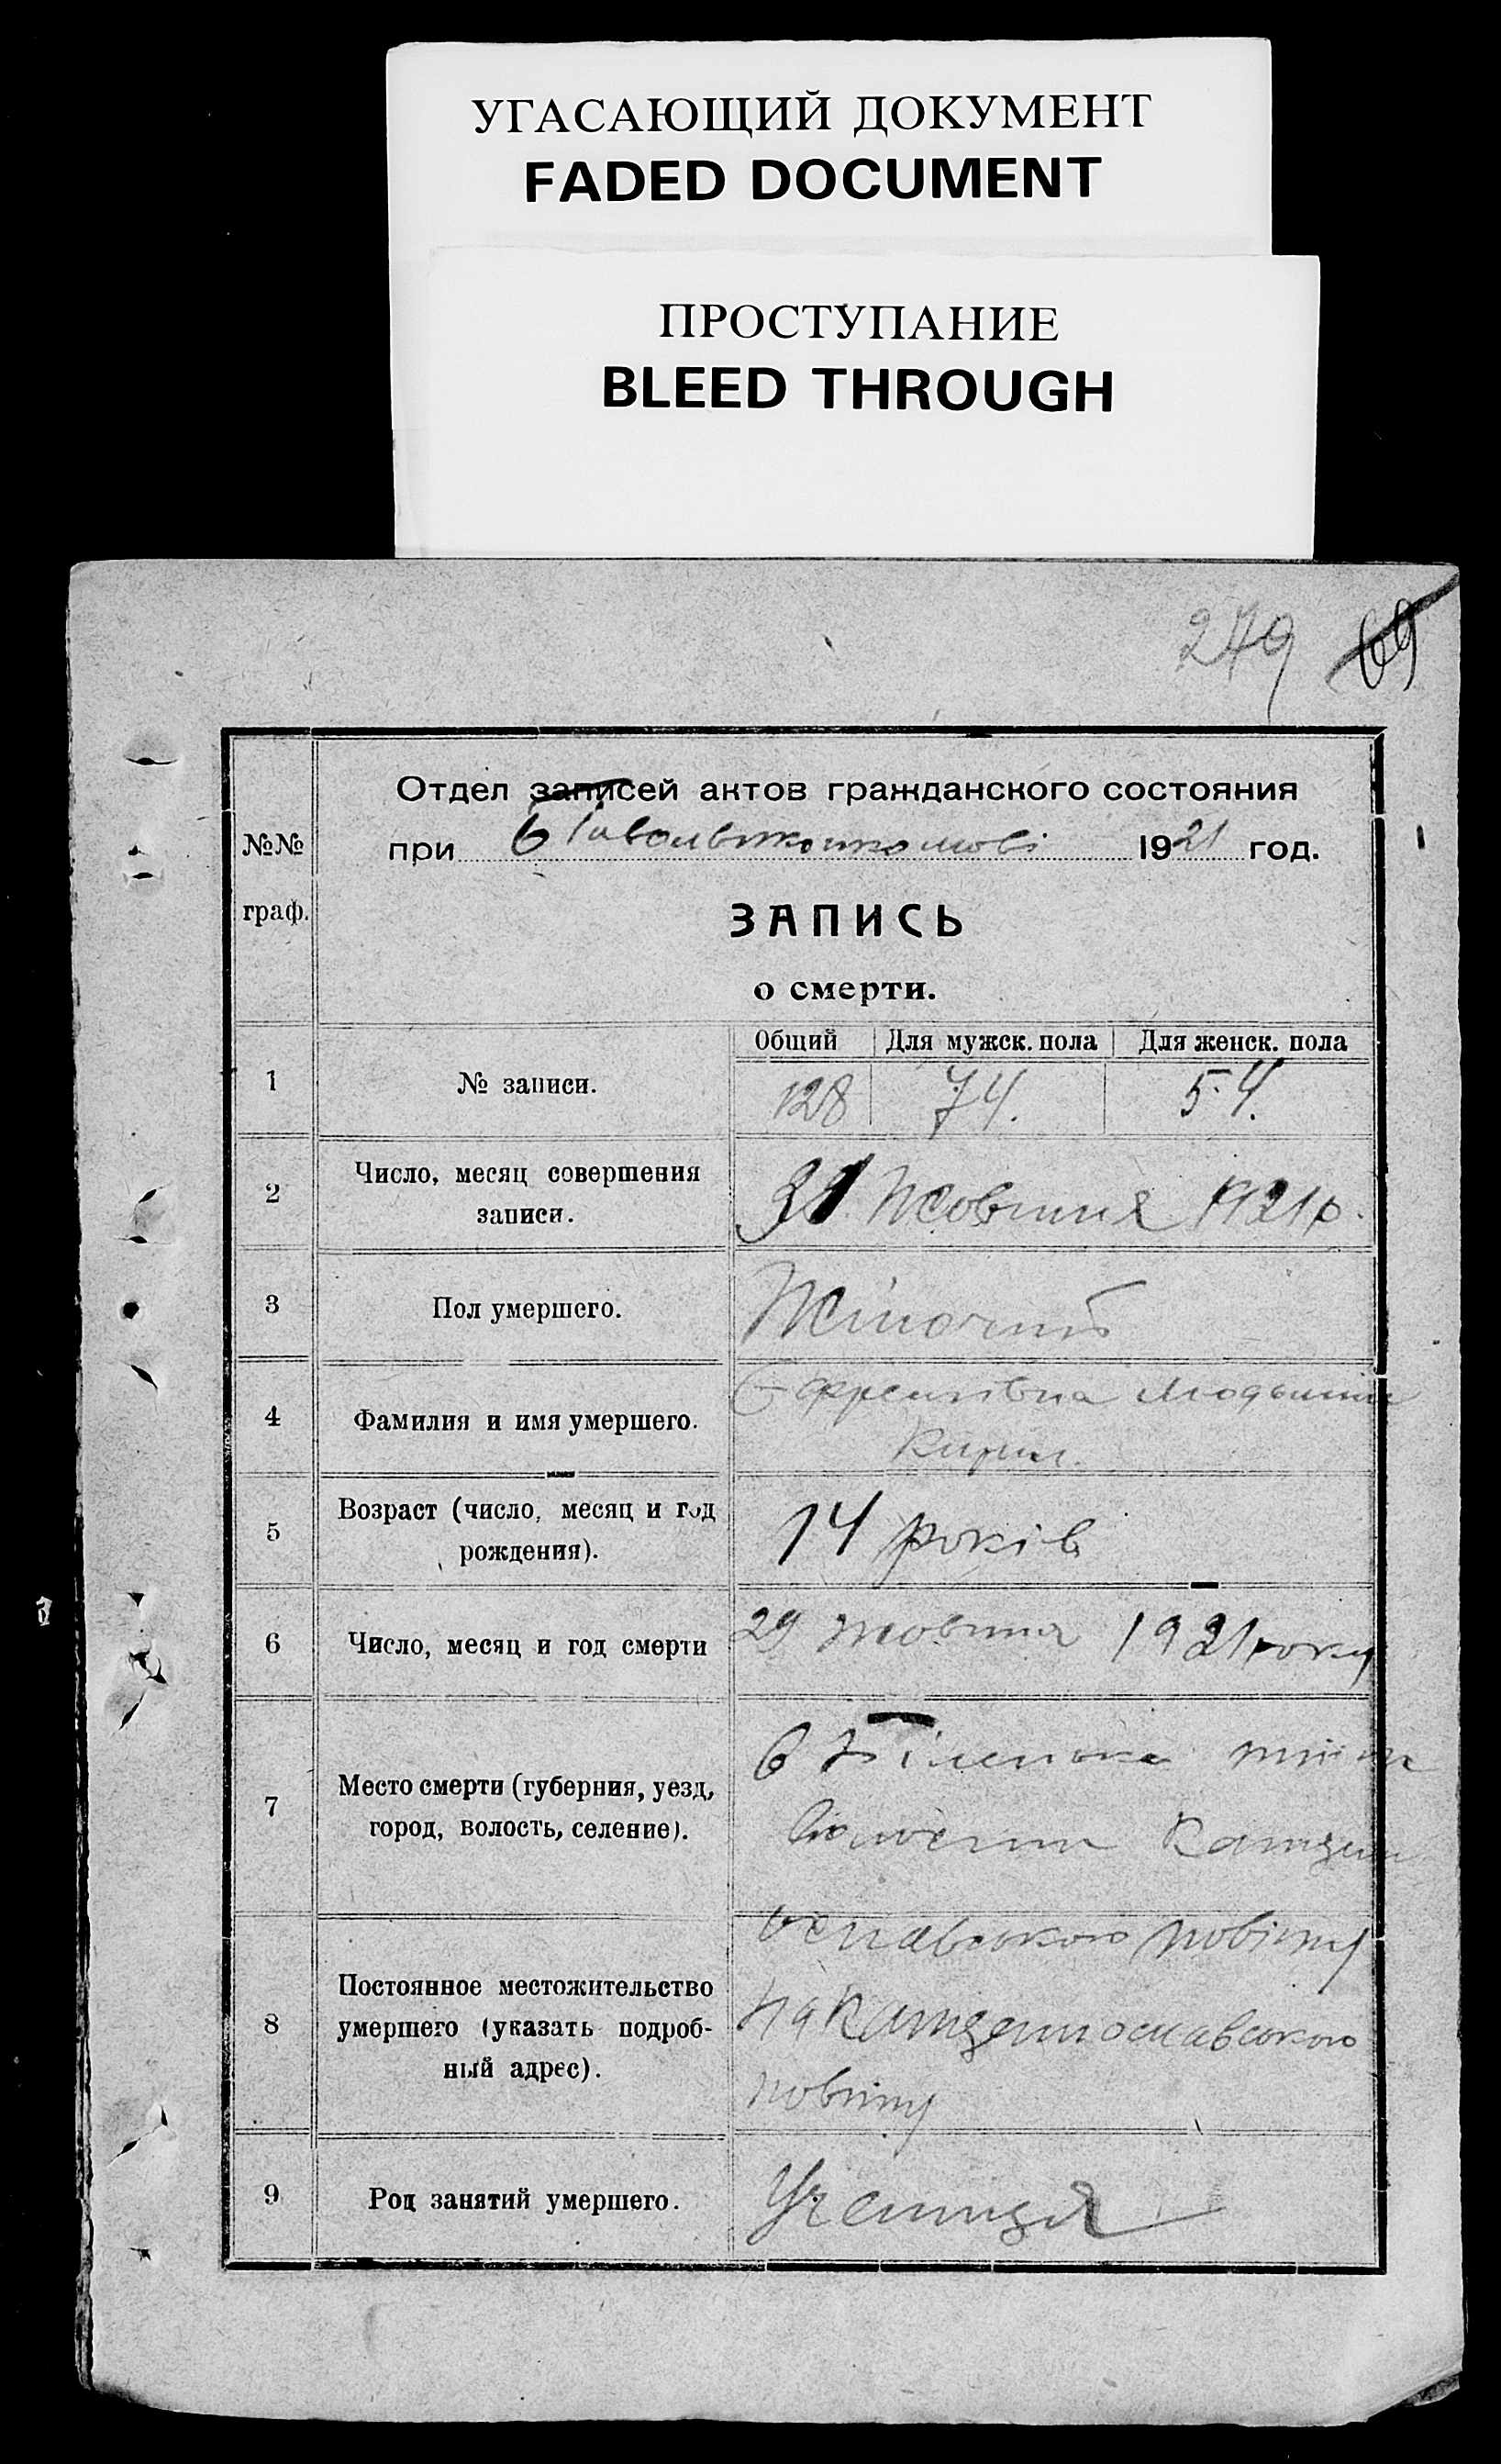 УГАСАЮЩИЙ ДОКУМЕНТ
FADED DOCUMENT
ПРОСТУПАНИЕ
BLEED THROUGH
279 69
Отдел записей актов гражданского состояния
№№
при 1921 год.
граф.
ЗАПИСЬ
о смерти.
Общий Для мужск. пола Для женск. пола
1 № записи. 128 74. 54.
2 Число, месяц совершения
записи.
31 Жовтня 1921 р.
3 Пол умершего. Жіночий
4 Фамилия и имя умершего.
Кирил.
5 Возраст (число, месяц и год
рождения).
14 років
6 Число, месяц и год смерти 29 жовтня 1921 року
7 Место смерти (губерния, уезд,
город, волость, селение).
в
Катерин
ославського повіту
8 Постоянное местожительство
умершего (указать подроб-
ный адрес).
на Катеринославського
повіту
9 Род занятий умершего. Учениця